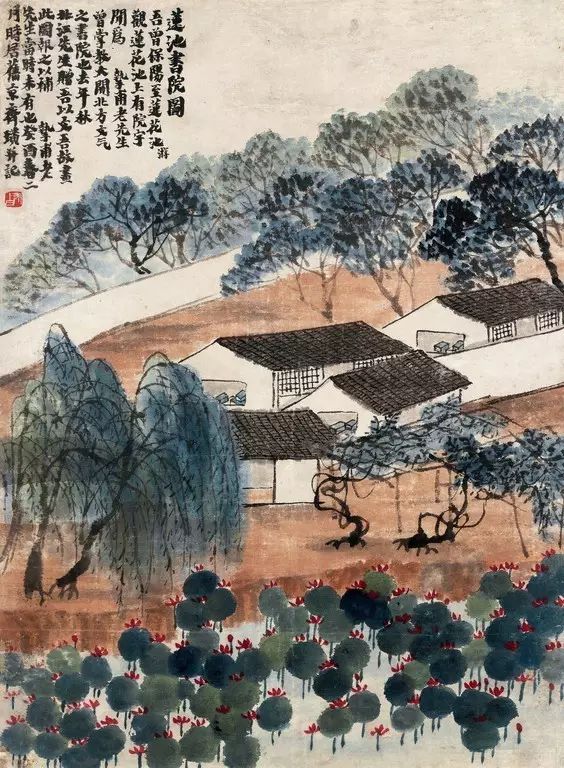 蓮池書院圖
吾曾游保陽至蓮花池
觀蓮花池上有院宇
聞為 摯甫老先生
曾掌教大開北方文氣
之書院也去年秋
北江先生贈吾以文吾故畫
此圖報之以補 摯甫老
先生當時未有也癸酉春二
月時居舊京齊璜并記